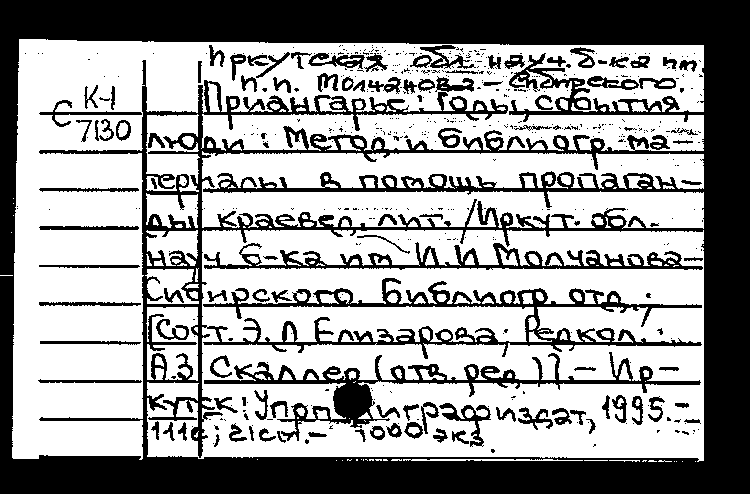 Иркутская обл. науч. б-ка им.
И.И. Молчанова-Сибирского.
С К-1
7130
Приангарье: Годы, события,
люди: Метод. и библиогр. ма-
териалы в помощь пропаган-
ды краевед. лит. / Иркут. обл.
науч. б-ка им И.И Молчанова-
Сибирского. Библиогр. отд.;
[Сост. Э.Л Елизарова; Редкол.:
А.З Скаллер (отв. ред)].- Ир-
кутск: 1995.-
111с; 1000 экз.